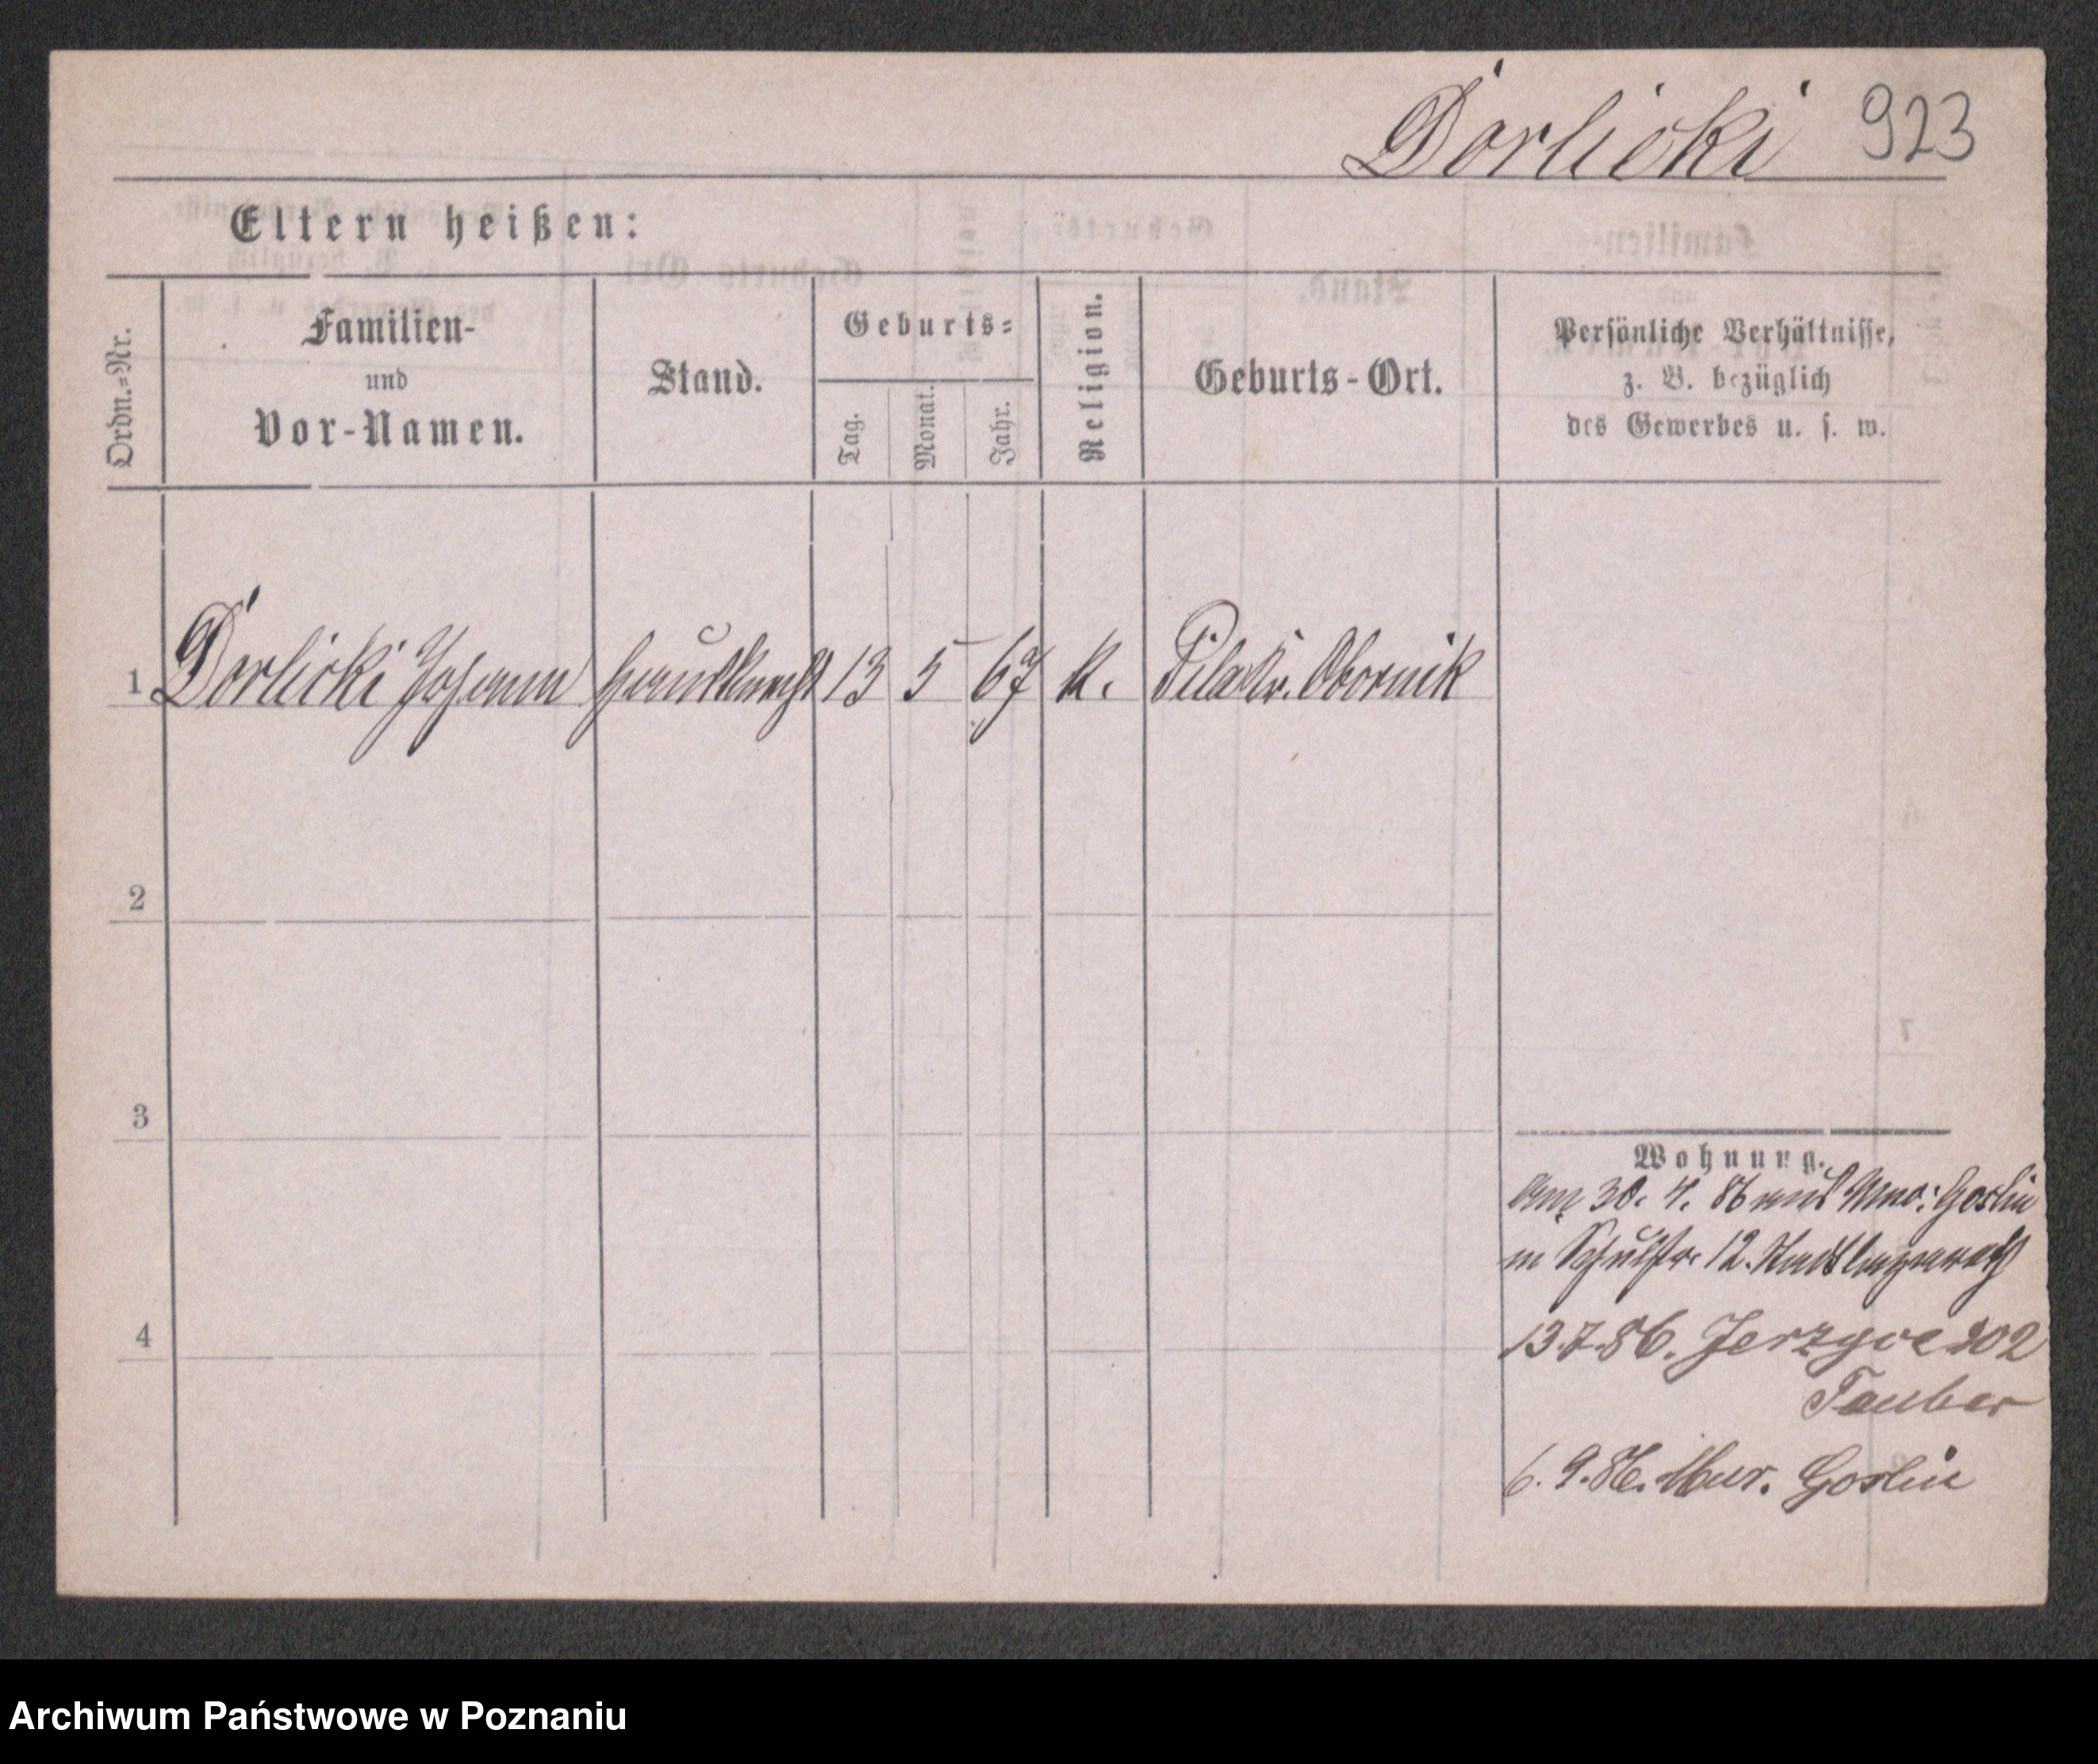 Dorlicki 923
Eltern heißen:
Ordn.=Nr.
Familien-
und
Vor-Namen.
Stand.
Geburts=
Tag.
Monat.
Jahr.
Religion.
Geburts-Ort.
Persönliche Verhältnisse,
z. B. bezüglich
des Gewerbes u. s. w.
1 Dorlicki Johann Hausknecht 13 5 67 K. Pila Kr. Obornik
2
3
4
Wohnung.
30. 4. 86 aus Goslin
in Schulstr. 12.
13.7.86. Jerzyce 202
Tauber
6. 9. 86. Mur. Goslin
Archiwum Państwowe w Poznaniu